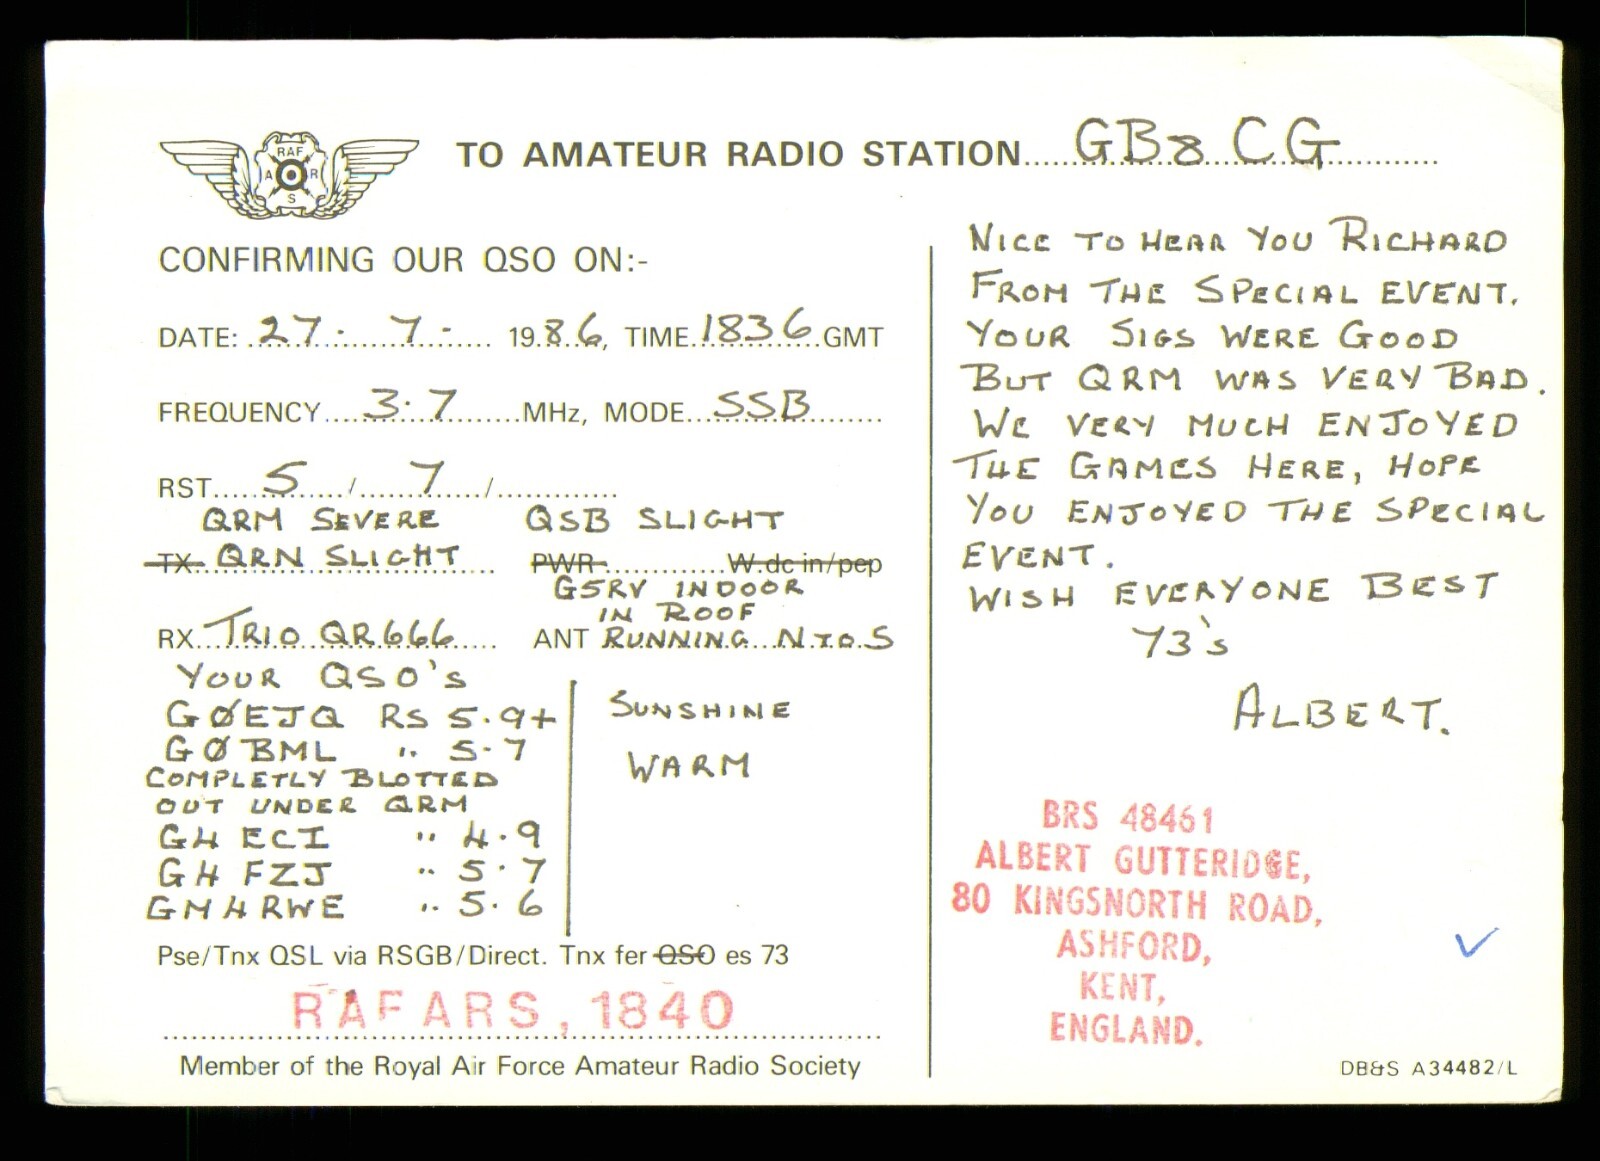 RAF
A R
S
TO AMATEUR RADIO STATION GB8CG
CONFIRMING OUR QSO ON:-
DATE: 27. 7. 1986, TIME 1836 GMT
FREQUENCY 3.7 MHz, MODE SSB
RST 5 / 7 /
QRM SEVERE QSB SLIGHT
TX QRN SLIGHT PWR W.dc in/pep
G5RV INDOOR
IN ROOF
RX TRIO QR666 ANT RUNNING N.TO.S
YOUR QSO's
GØEJQ RS 5.9+
GØBML " 5.7
COMPLETLY BLOTTED
OUT UNDER QRM
G4 ECI " 4.9
G4 FZJ " 5.7
GM4RWE " 5.6
SUNSHINE
WARM
Pse/Tnx QSL via RSGB/Direct. Tnx fer QSO es 73
RAFARS, 1840
Member of the Royal Air Force Amateur Radio Society
NICE TO HEAR YOU RICHARD
FROM THE SPECIAL EVENT.
YOUR SIGS WERE GOOD
BUT QRM WAS VERY BAD.
WE VERY MUCH ENJOYED
THE GAMES HERE, HOPE
YOU ENJOYED THE SPECIAL
EVENT.
WISH EVERYONE BEST
73's
ALBERT.
BRS 48461
ALBERT GUTTERIDGE,
80 KINGSNORTH ROAD,
ASHFORD,
KENT,
ENGLAND.
DB&S A34482/L